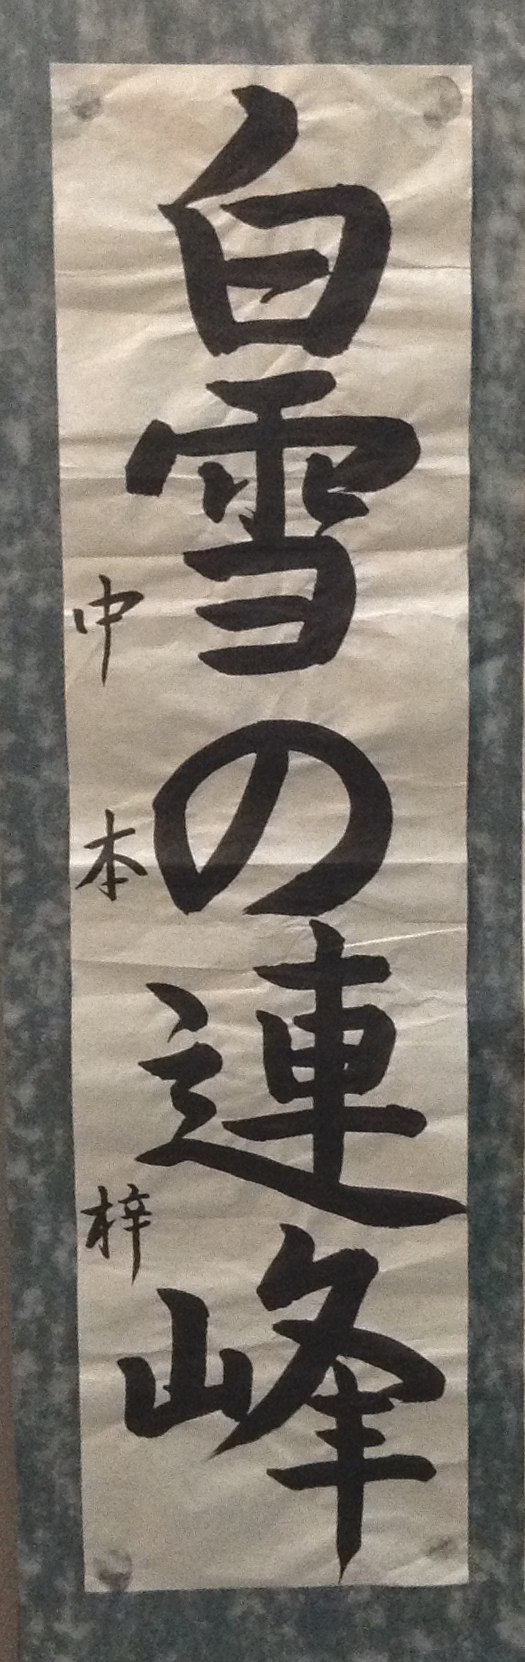 白雪の連峰
中本梓